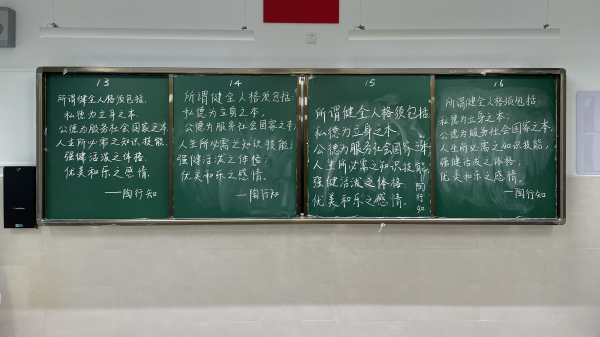 13
所谓健全人格须包括:
私德为立身之本,
公德为服务社会国家之本
人生所必需之知识技能,
强健活泼之体格.
优美和乐之感情.
——陶行知
14
所谓健全人格须包括:
私德为立身之本,
公德为服务社会国家之本
人生所必需之知识技能,
强健活泼之体格;
优美和乐之感情.
——陶行知
15
所谓健全人格须包括
私德为立身之本
公德为服务社会国家之本
人生所必需之知识技能
强健活泼之体格
优美和乐之感情。
陶行知
16
所谓健全人格须包括
私德为立身之本;
公德为服务社会国家之本
人生所必需之知识技能,
强健活泼之体格,
优美和乐之感情。
——陶行知